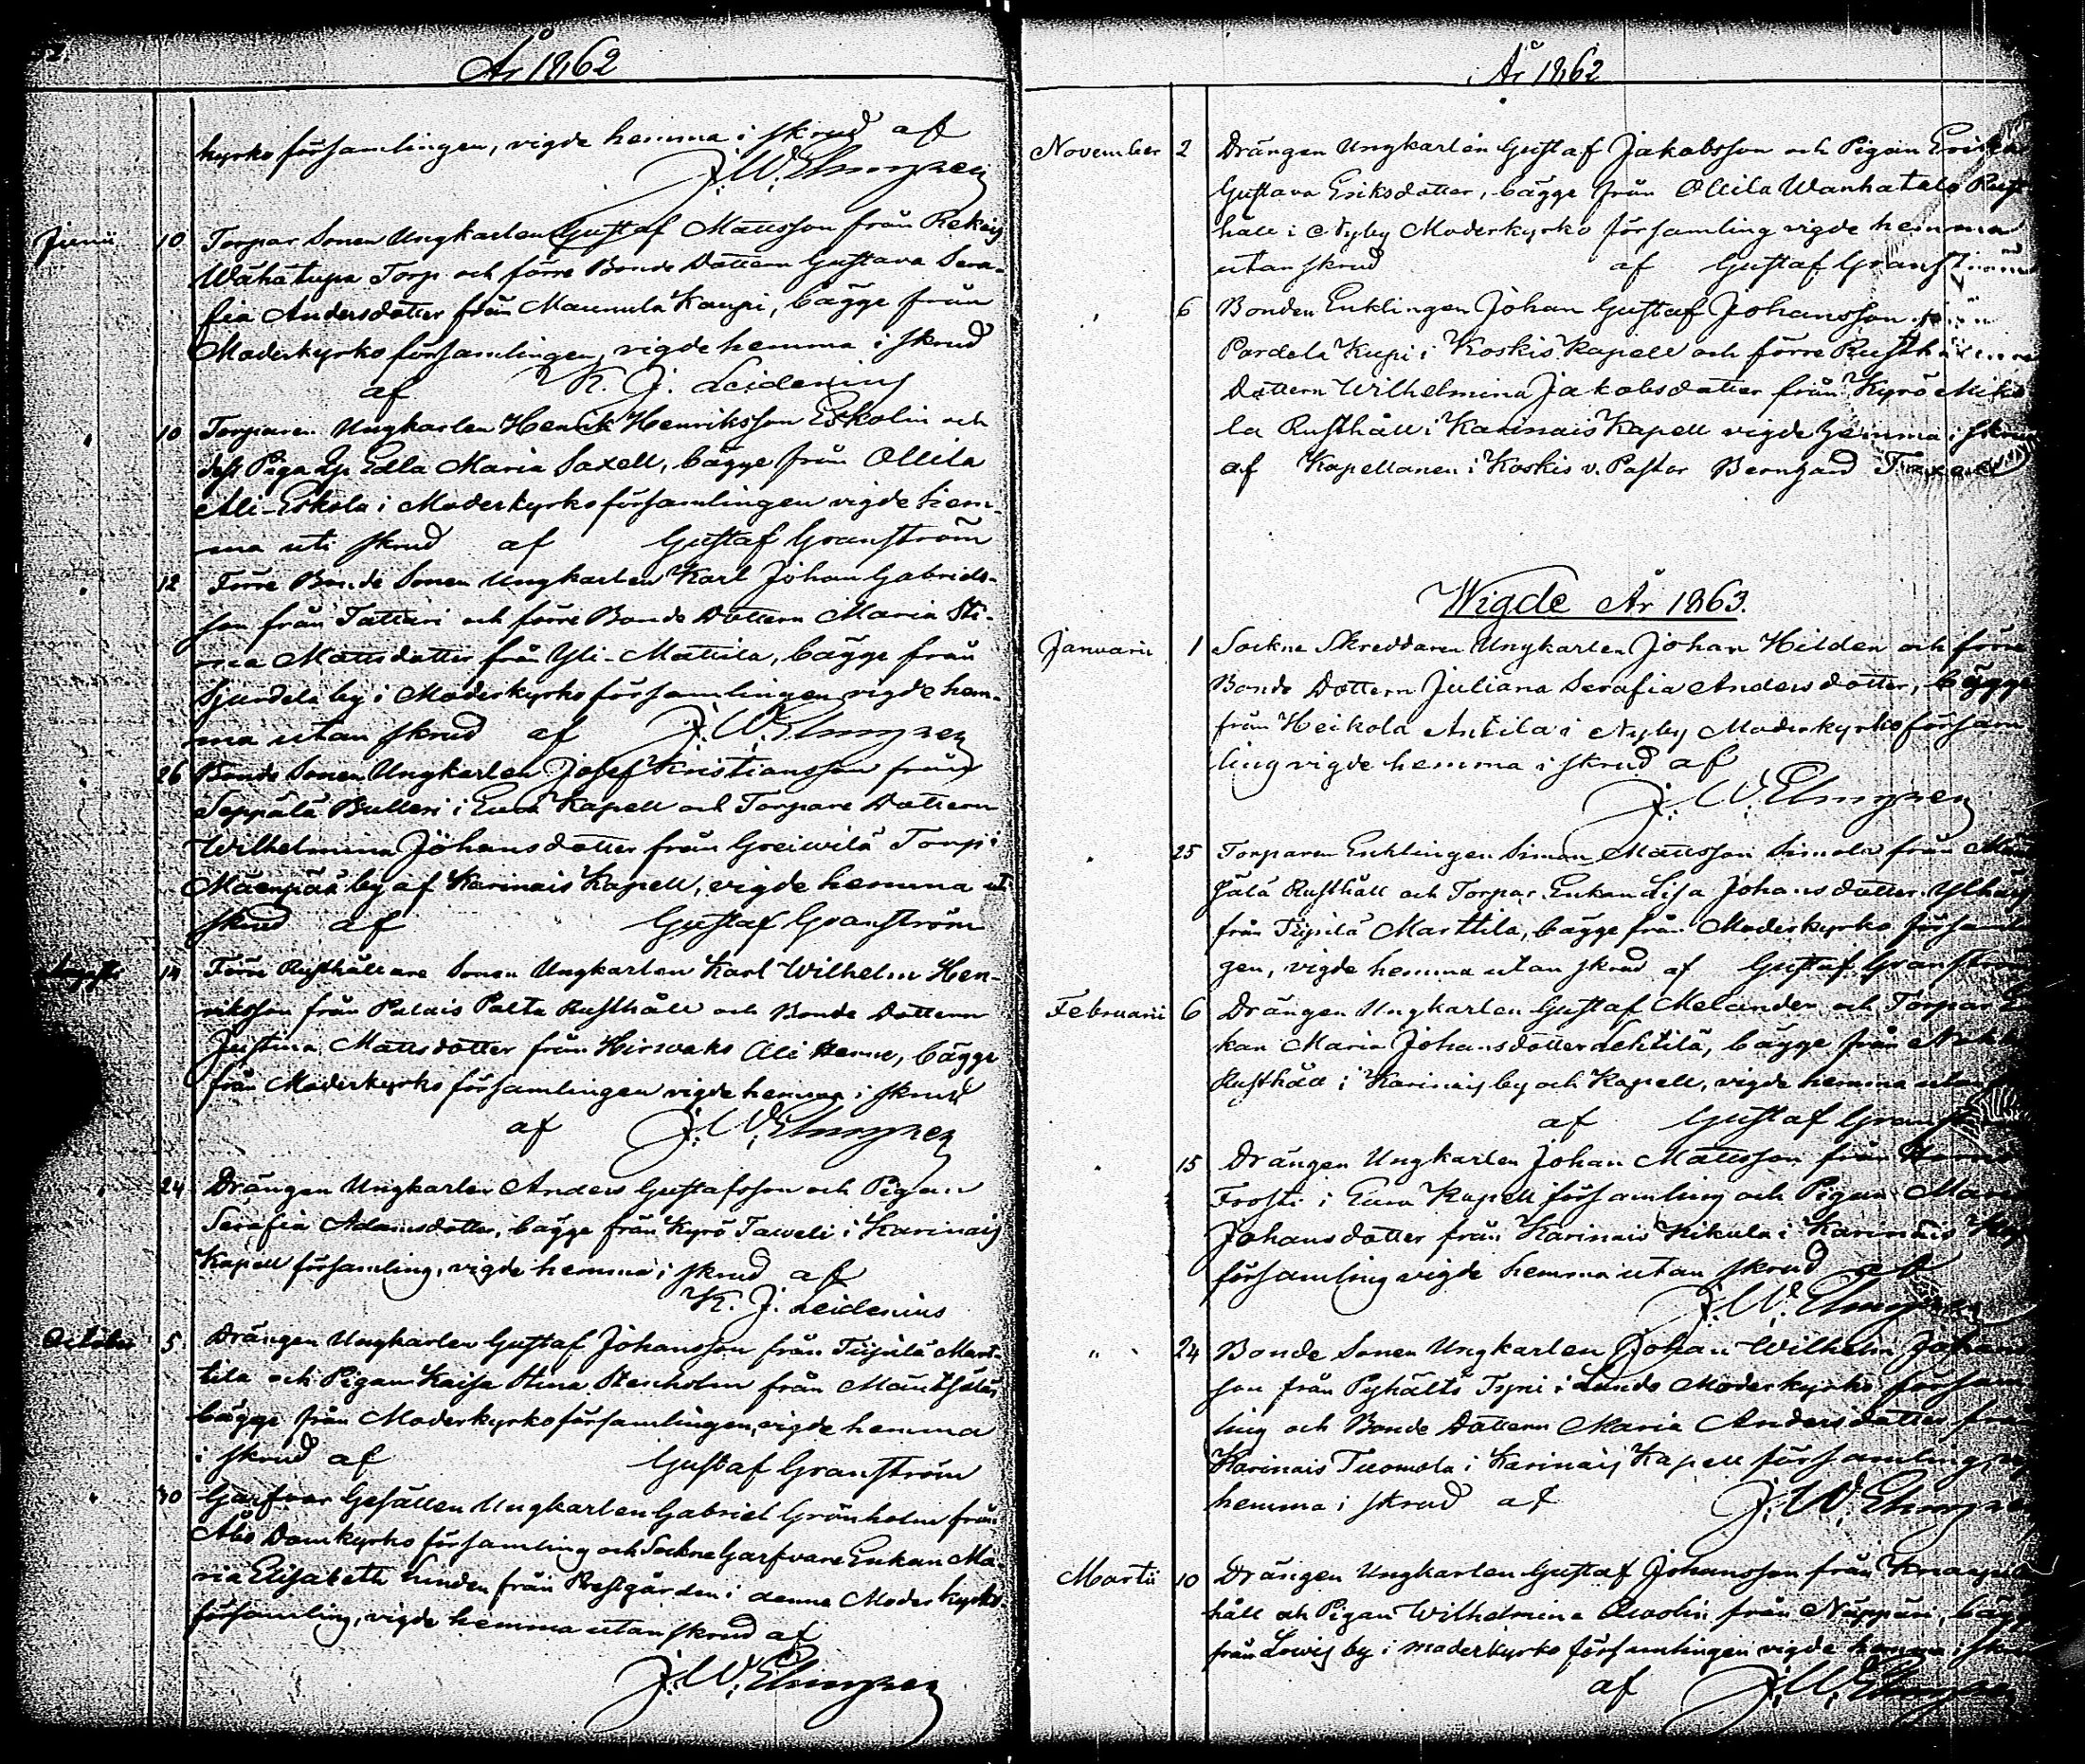 År 1862
kyrko församlingen, vigde hemma i skrud af
J. W. Elmgren
Junii 10 Torpar Sonen Ungkarlen Gustaf Mattsson från Rekois
Wähätupa Torp och förre Bonde Dottern Gustava Sera-
fia Andersdotter från Maunula Kaupi, bägge från
Moderkyrko församlingen, vigde hemma i skrud
af K. J. Leidenius
10 Torparen Ungkarlen Henrik Henriksson Eskolin och
dess Piga Edla Maria Saxell, bägge från Ollila
Ali-Eskola i Moderkyrkoförsamlingen vigde hem-
ma uti skrud af Gustaf Granström
12 Förre Bonde Sonen Ungkarlen Karl Johan Gabriels-
son från Tattari och förre Bonde Dottern Maria Sti-
na Mattsdotter från Yli-Mattila, bägge från
Sjurdela by i Moderkyrko församlingen vigde hem-
ma utan skrud af J. W. Elmgren
26 Bonde Sonen Ungkarlen Josef Kristiansson från
Seppälä Bulleri i Eura Kapell och Torpare Dottern
Wilhelmina Johansdotter från Greiwilä Torp i
Mäenpää by af Karinais Kapell, vigde hemma uti
skrud af Gustaf Granström
Augusti 14 Förre Rusthållare Sonen Ungkarlen Karl Wilhelm Hen-
riksson från Palais Palta Rusthåll och Bonde Dottern
Justina Mattsdotter från Hirwaks Ali Henne, bägge
från Moderkyrko församlingen vigde hemma i skrud
af J. W. Elmgren
24 Drängen Ungkarlen Anders Gustafsson och Pigan
Serafia Adamsdotter, bägge från Kyrö Taweli i Karinais
Kapell församling, vigde hemma i skrud af
K. J. Leidenius
October 5 Drängen Ungkarlen Gustaf Johansson från Tiipilä Mart-
tila och Pigan Kaisa Stina Stenholm från Mäntsälä,
bägge från Moderkyrkoförsamlingen, vigde hemma
i skrud af Gustaf Granström
30 Garfvar Gesällen Ungkarlen Gabriel Grönholm från
Åbo Domkyrko församling och Sockne Garfvare Enkan Ma-
ria Elisabeth Linden från Prestgården i denna Moderkyrko-
församling, vigde hemma utan skrud af
J. W. Elmgren
År 1862
November 2 Drängen Ungkarlen Gustaf Jakobsson och Pigan Erika
Gustava Eriksdotter, bägge från Ollila Wanhatalo Rust-
håll i Nyby Moderkyrko församling vigde hemma
utan skrud af Gustaf Granström
6 Bonden Enklingen Johan Gustaf Johansson från
Pardela Kupi i Koskis Kapell och förre Rusthållare
Dottern Wilhelmina Jakobsdotter från Kyrö Mikko
la Rusthåll i Karinais Kapell vigde hemma i skrud
af Kapellanen i Koskis v. Pastor Berngard
Wigde År 1863.
Januarii 1 Sockne Skreddaren Ungkarlen Johan Hilden och förre
Bonde Dottern Juliana Serafia Andersdotter, bägge
från Heikola Antila i Nyby Moderkyrko försam
ling vigde hemma i skrud af
J. W. Elmgren
25 Torparen Enklingen Simon Mattsson Simola från Mänt
sälä Rusthåll och Torpar Enkan Lisa Johansdotter
från Tiipilä Marttila, bägge från Moderkyrko församlin
gen, vigde hemma utan skrud af Gustaf Granström
Februarii 6 Drängen Ungkarlen Gustaf Melander och Torpar En
kan Maria Johansdotter Lehtilä, bägge från
Rusthåll i Karinais by och Kapell, vigde hemma utan
af Gustaf Granström
15 Drängen Ungkarlen Johan Mattsson från
Frosti i Eura Kapell församling och Pigan Maria
Johansdotter från Karinais Nikula i Karinais Kap
församling vigde hemma utan skrud af
J. W. Elmgren
" 24 Bonde Sonen Ungkarlen Johan Wilhelm Johans
son från Pyhältö Typi i Lundo Moderkyrko försam
ling och Bonde Dottern Maria Andersdotter från
Karinais Tuomola i Karinais Kapell församling,
hemma i skrud af J. W. Elmgren
Martii 10 Drängen Ungkarlen Gustaf Johansson från
håll och Pigan Wilhelmina från Näppäri, bägge
från Lowis by i moderkyrko församlingen vigde hemma i skrud
af J. W. Elmgren